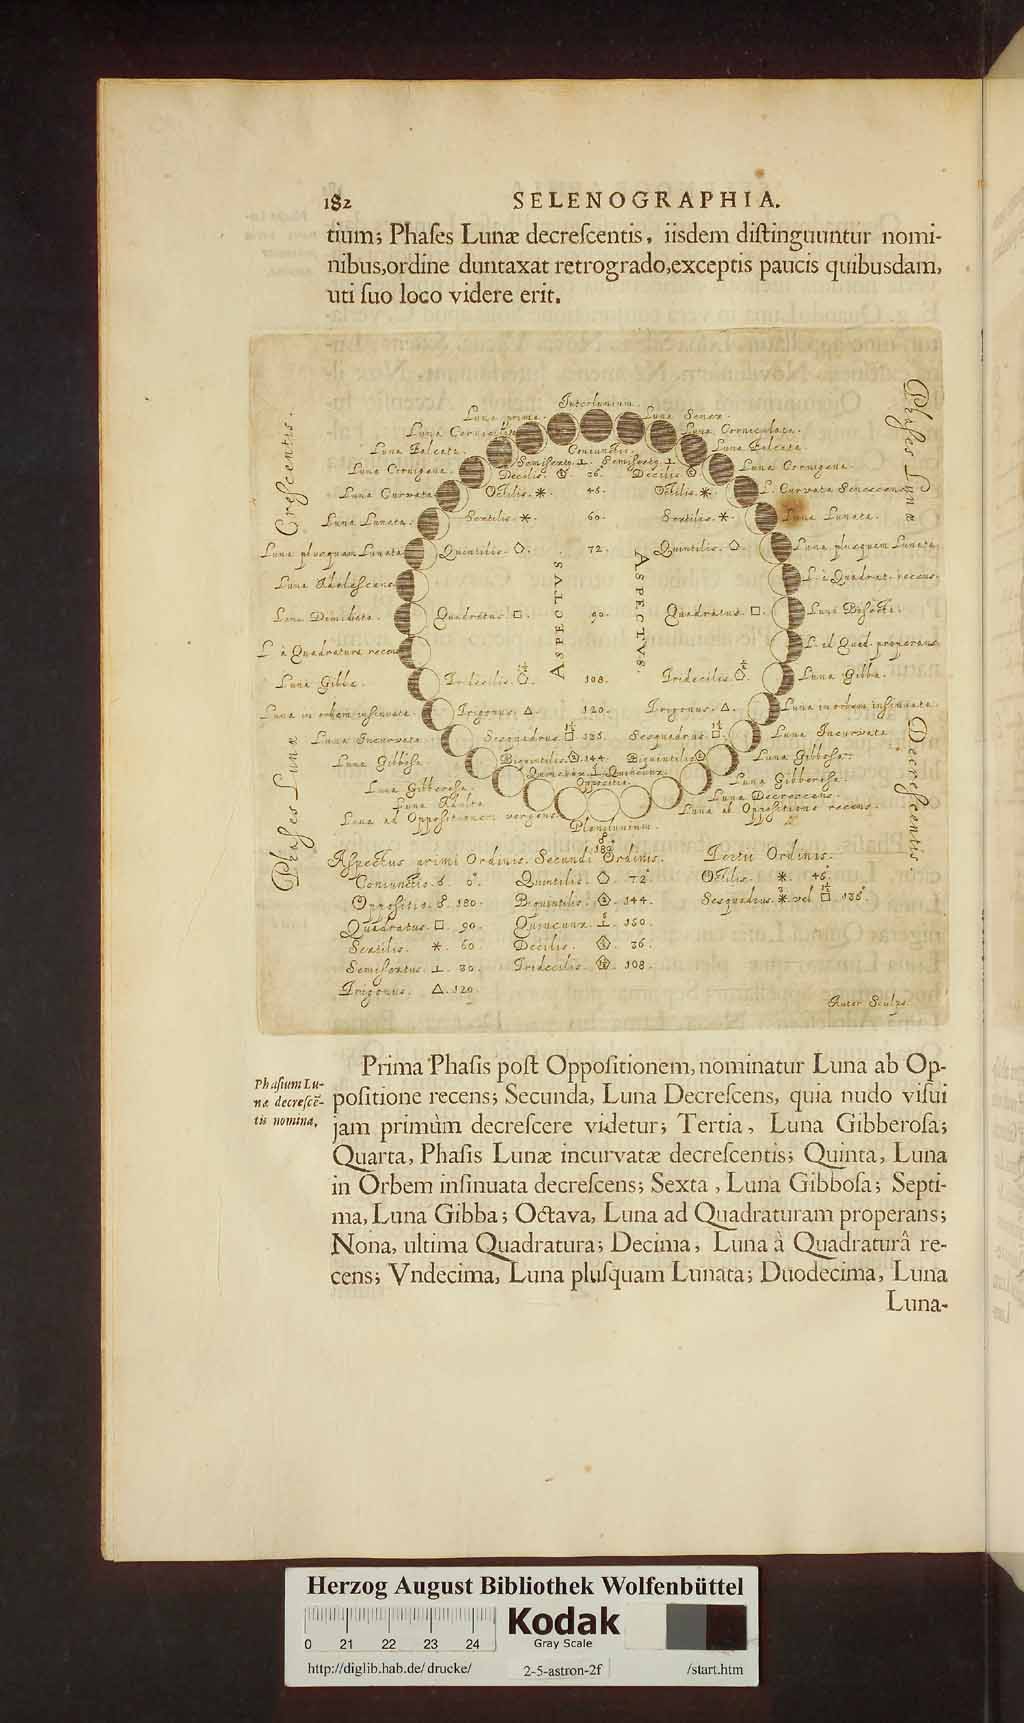 182 SELENOGRAPHIA.
tium; Phaſes Lunæ decreſcentis, iisdem diſtinguuntur nomi-
nibus,ordine duntaxat retrogrado,exceptis paucis quibusdam,
uti ſuo loco videre erit.
Interlunium.
Luna prima.
Luna Senex.
Luna Corniculata.
Luna Corniculata.
Luna Falcata.
Luna Falcata.
Luna Cornigera.
Luna Cornigera.
Luna Curvata
L. Curvata Senescens
Luna Lunata.
Luna Lunata.
Luna plusquam Lunata
Luna plusquam Lunata
Luna Adolescens
L. à Quadrat. recens.
Luna Dimidiata.
Luna Bisecta.
L. à Quadratura recens
L. ad Quad. properans
Luna Gibba.
Luna Gibba.
Luna in orbem insinuata.
Luna in orbem insinuata
Luna Incurvata
Luna Incurvata
Luna Gibbosa
Luna Gibbosa.
Luna Gibberosa.
Luna Gibberosa.
Luna Adulta
Luna Decrescens.
Luna ad Oppositionem vergens.
Luna ab Oppositione recens.
Plenilunium.
☍
180
Phases Lunæ
Crescentis.
Phases Lunæ
Decrescentis.
Coniunctio.
Semisexty. ⊥. Semisexty. ⊥
Decilis. 36. Decilis
Octilis. ⚹. 45. Octilis. ⚹.
Sextilis. ⚹. 60. Sextilis. ⚹.
Quintilis. ⬠. 72. Quintilis. ⬠.
ASPECTVS
ASPECTVS.
Quadratus. □. 90. Quadratus. □.
Tridecilis. 108. Tridecilis.
Trigonus. △. 120. Trigonus. △.
Sesquadrus. □ 135. Sesquadrus. □.
Biquintilis. 144. Biquintilis
Quincunx. Quincunx.
Oppositio.
Aspectus primi Ordinis. Secundi Ordinis. Tertii Ordinis.
Coniunctio. ☌. 0°. Quintilis. ⬠. 72°. Octilis. ⚹. 45°.
Oppositio. ☍. 180. Biquintilis. 144. Sesquadrus. ⚹ vel □. 135°.
Quadratus. □. 90. Quincunx. 150.
Sextilis. ⚹. 60. Decilis. 36.
Semisextus. ⊥. 30. Tridecilis. 108.
Trigonus. △. 120.
Autor Sculps.
Phaſium Lu-
næ decreſcē-
tis nomina,
Prima Phaſis poſt Oppoſitionem, nominatur Luna ab Op-
poſitione recens; Secunda, Luna Decreſcens, quia nudo viſui
jam primùm decreſcere videtur; Tertia, Luna Gibberoſa;
Quarta, Phaſis Lunæ incurvatæ decreſcentis; Quinta, Luna
in Orbem inſinuata decreſcens; Sexta, Luna Gibboſa; Septi-
ma, Luna Gibba; Octava, Luna ad Quadraturam properans;
Nona, ultima Quadratura; Decima, Luna à Quadraturâ re-
cens; Vndecima, Luna pluſquam Lunata; Duodecima, Luna
Luna-
Herzog August Bibliothek Wolfenbüttel
0 21 22 23 24
Kodak
Gray Scale
http://diglib.hab.de/drucke/ 2-5-astron-2f /start.htm